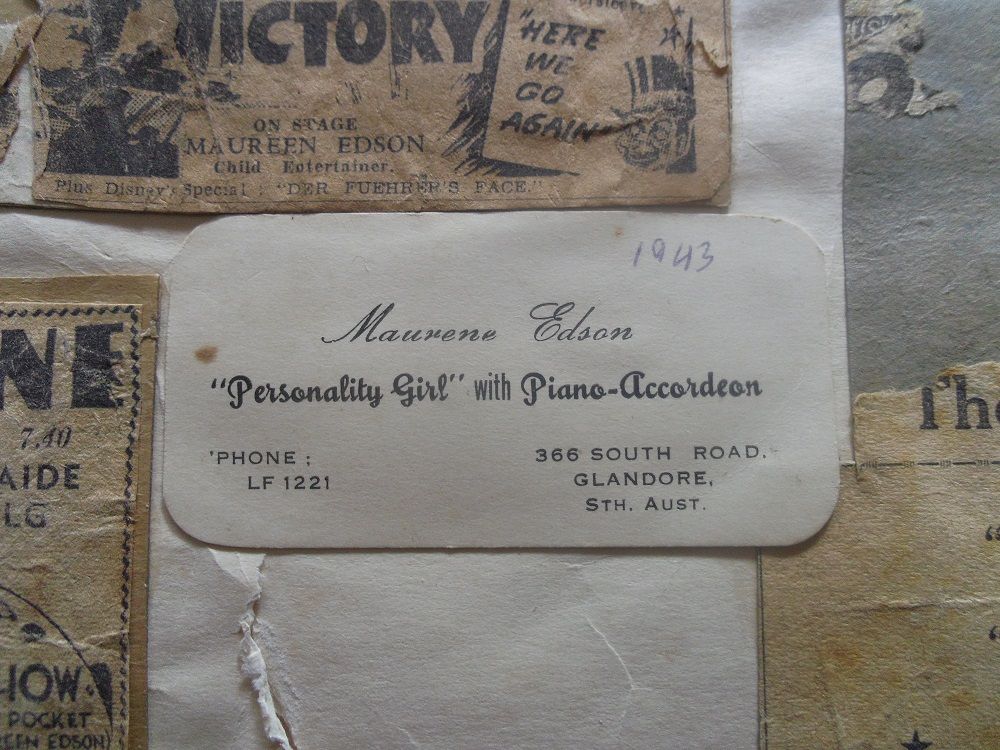 VICTORY
"HERE
WE
GO
AGAIN"
ON STAGE
MAUREEN EDSON
Child Entertainer.
Plus Disney's Special : "DER FUEHRER'S FACE."
1943
Maurene Edson
"Personality Girl" with Piano-Accordeon
'PHONE :
LF 1221
366 SOUTH ROAD,
GLANDORE,
STH. AUST.
NE
7.40
AIDE
LG
HOW
POCKET
REEN EDSON
Th